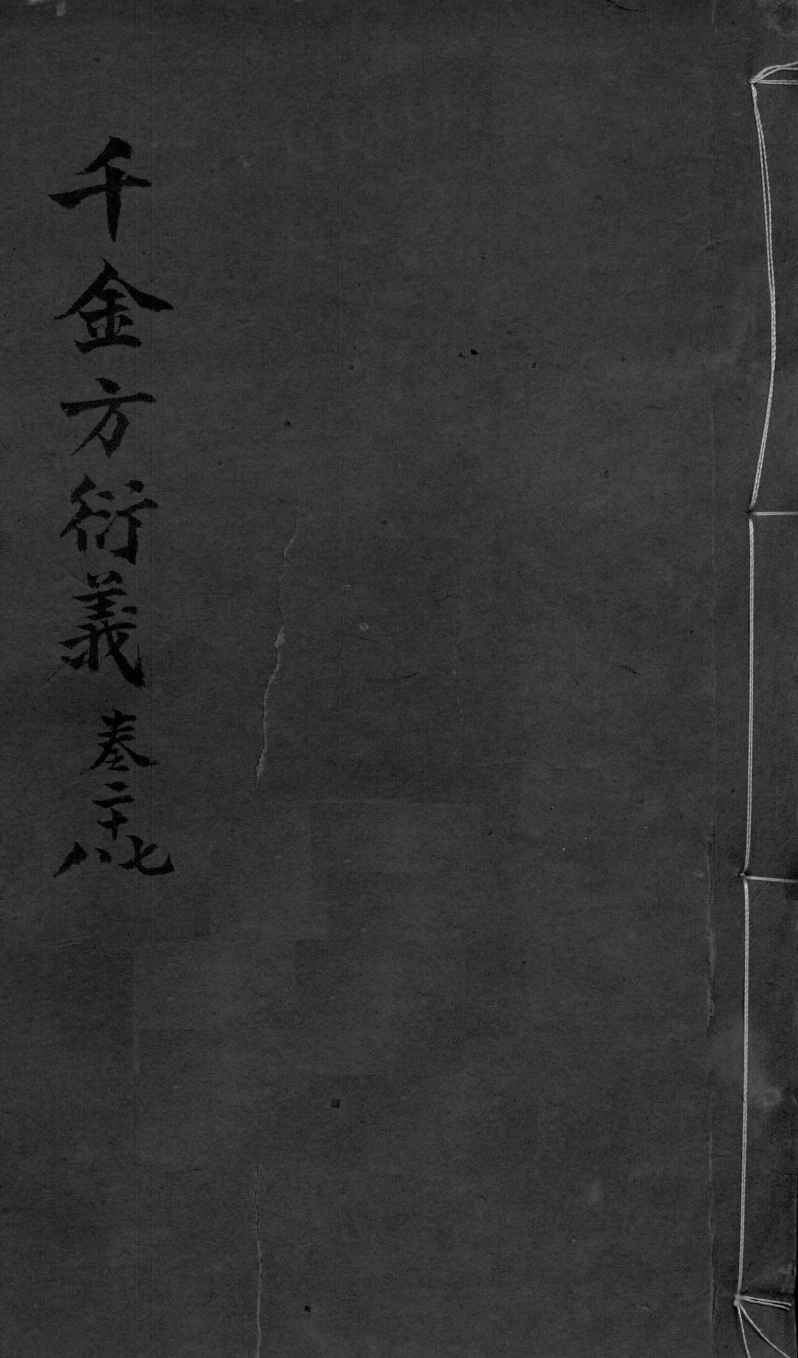 千金方衍義 卷二十七八